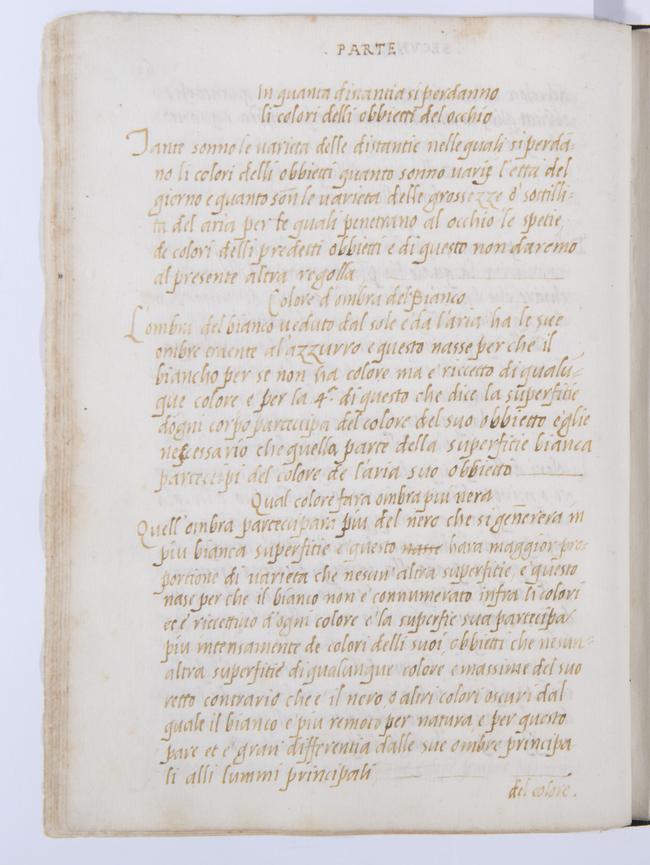 . PARTE
In quanta distantia si perdanno
li colori delli obbietti del occhio
Tante sonno le varieta delle distantie nelle quali si perda-
no li colori delli obbietti quanto sonno varie l'etta del
giorno e quanto son le varieta delle grossezze o' sottili-
ta del aria per le quali penetrano al occhio le spetie
de colori delli predetti obbietti e di questo non daremo
al presente altra regolla
Colore d'ombra del Bianco
L'ombra del bianco veduto dal sole e da l'aria ha le sue
ombre traente al'azzurro e questo nasse per che il
biancho per se non ha colore ma e' ricetto di qualu-
que colore e per la 4ª. di questo che dice la superfitie
d'ogni corpo partecipa del colore del suo obbietto e' glie
necessario che quella parte della superfitie bianca
partecipi del colore de l'aria suo obbietto
Qual colore fara ombra piu nera
Quell'ombra partecipara piu del nero che si genererà in
piu bianca superfitie e questo nasse hara maggior pro-
portione di varieta che nesun'altra superfitie, e questo
nase per che il bianco non e' connumerato infra li colori
et e' ricettivo d'ogni colore e la superfie sua partecipa
piu intensamente de colori delli suoi obbietti che nesun-
altra superfitie di qualunque colore e massime del suo
retto contrario che e' il nero, o altri colori oscuri dal
quale il bianco e piu remoto per natura, e per questo
pare et e' gran differentia dalle sue ombre principa
li alli lummi principali
del colore.